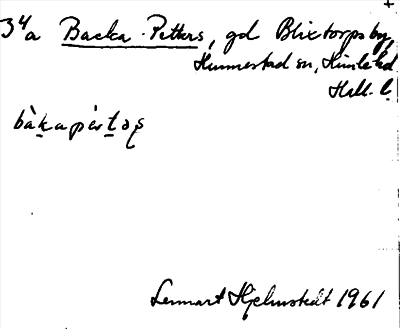 3⁴a Backa-Petters, gd Blixtorps by,
Hunnestad sn, Himle hd
Hall. l.
bàkapèrtəʂ
Lennart Hjelmstedt 1961